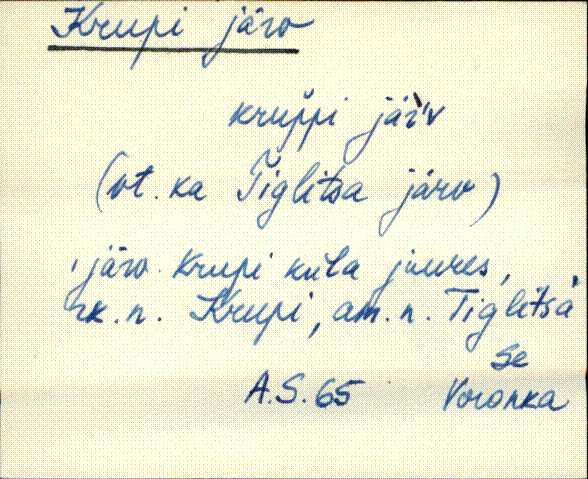 Krupi järv
kruppi järv
(vt. ka Tiglitsa järv)
järv Krupi küla juures,
rk. n. Krupi, am. n. Tiglitsa
Se
A.S. 65 Voronka